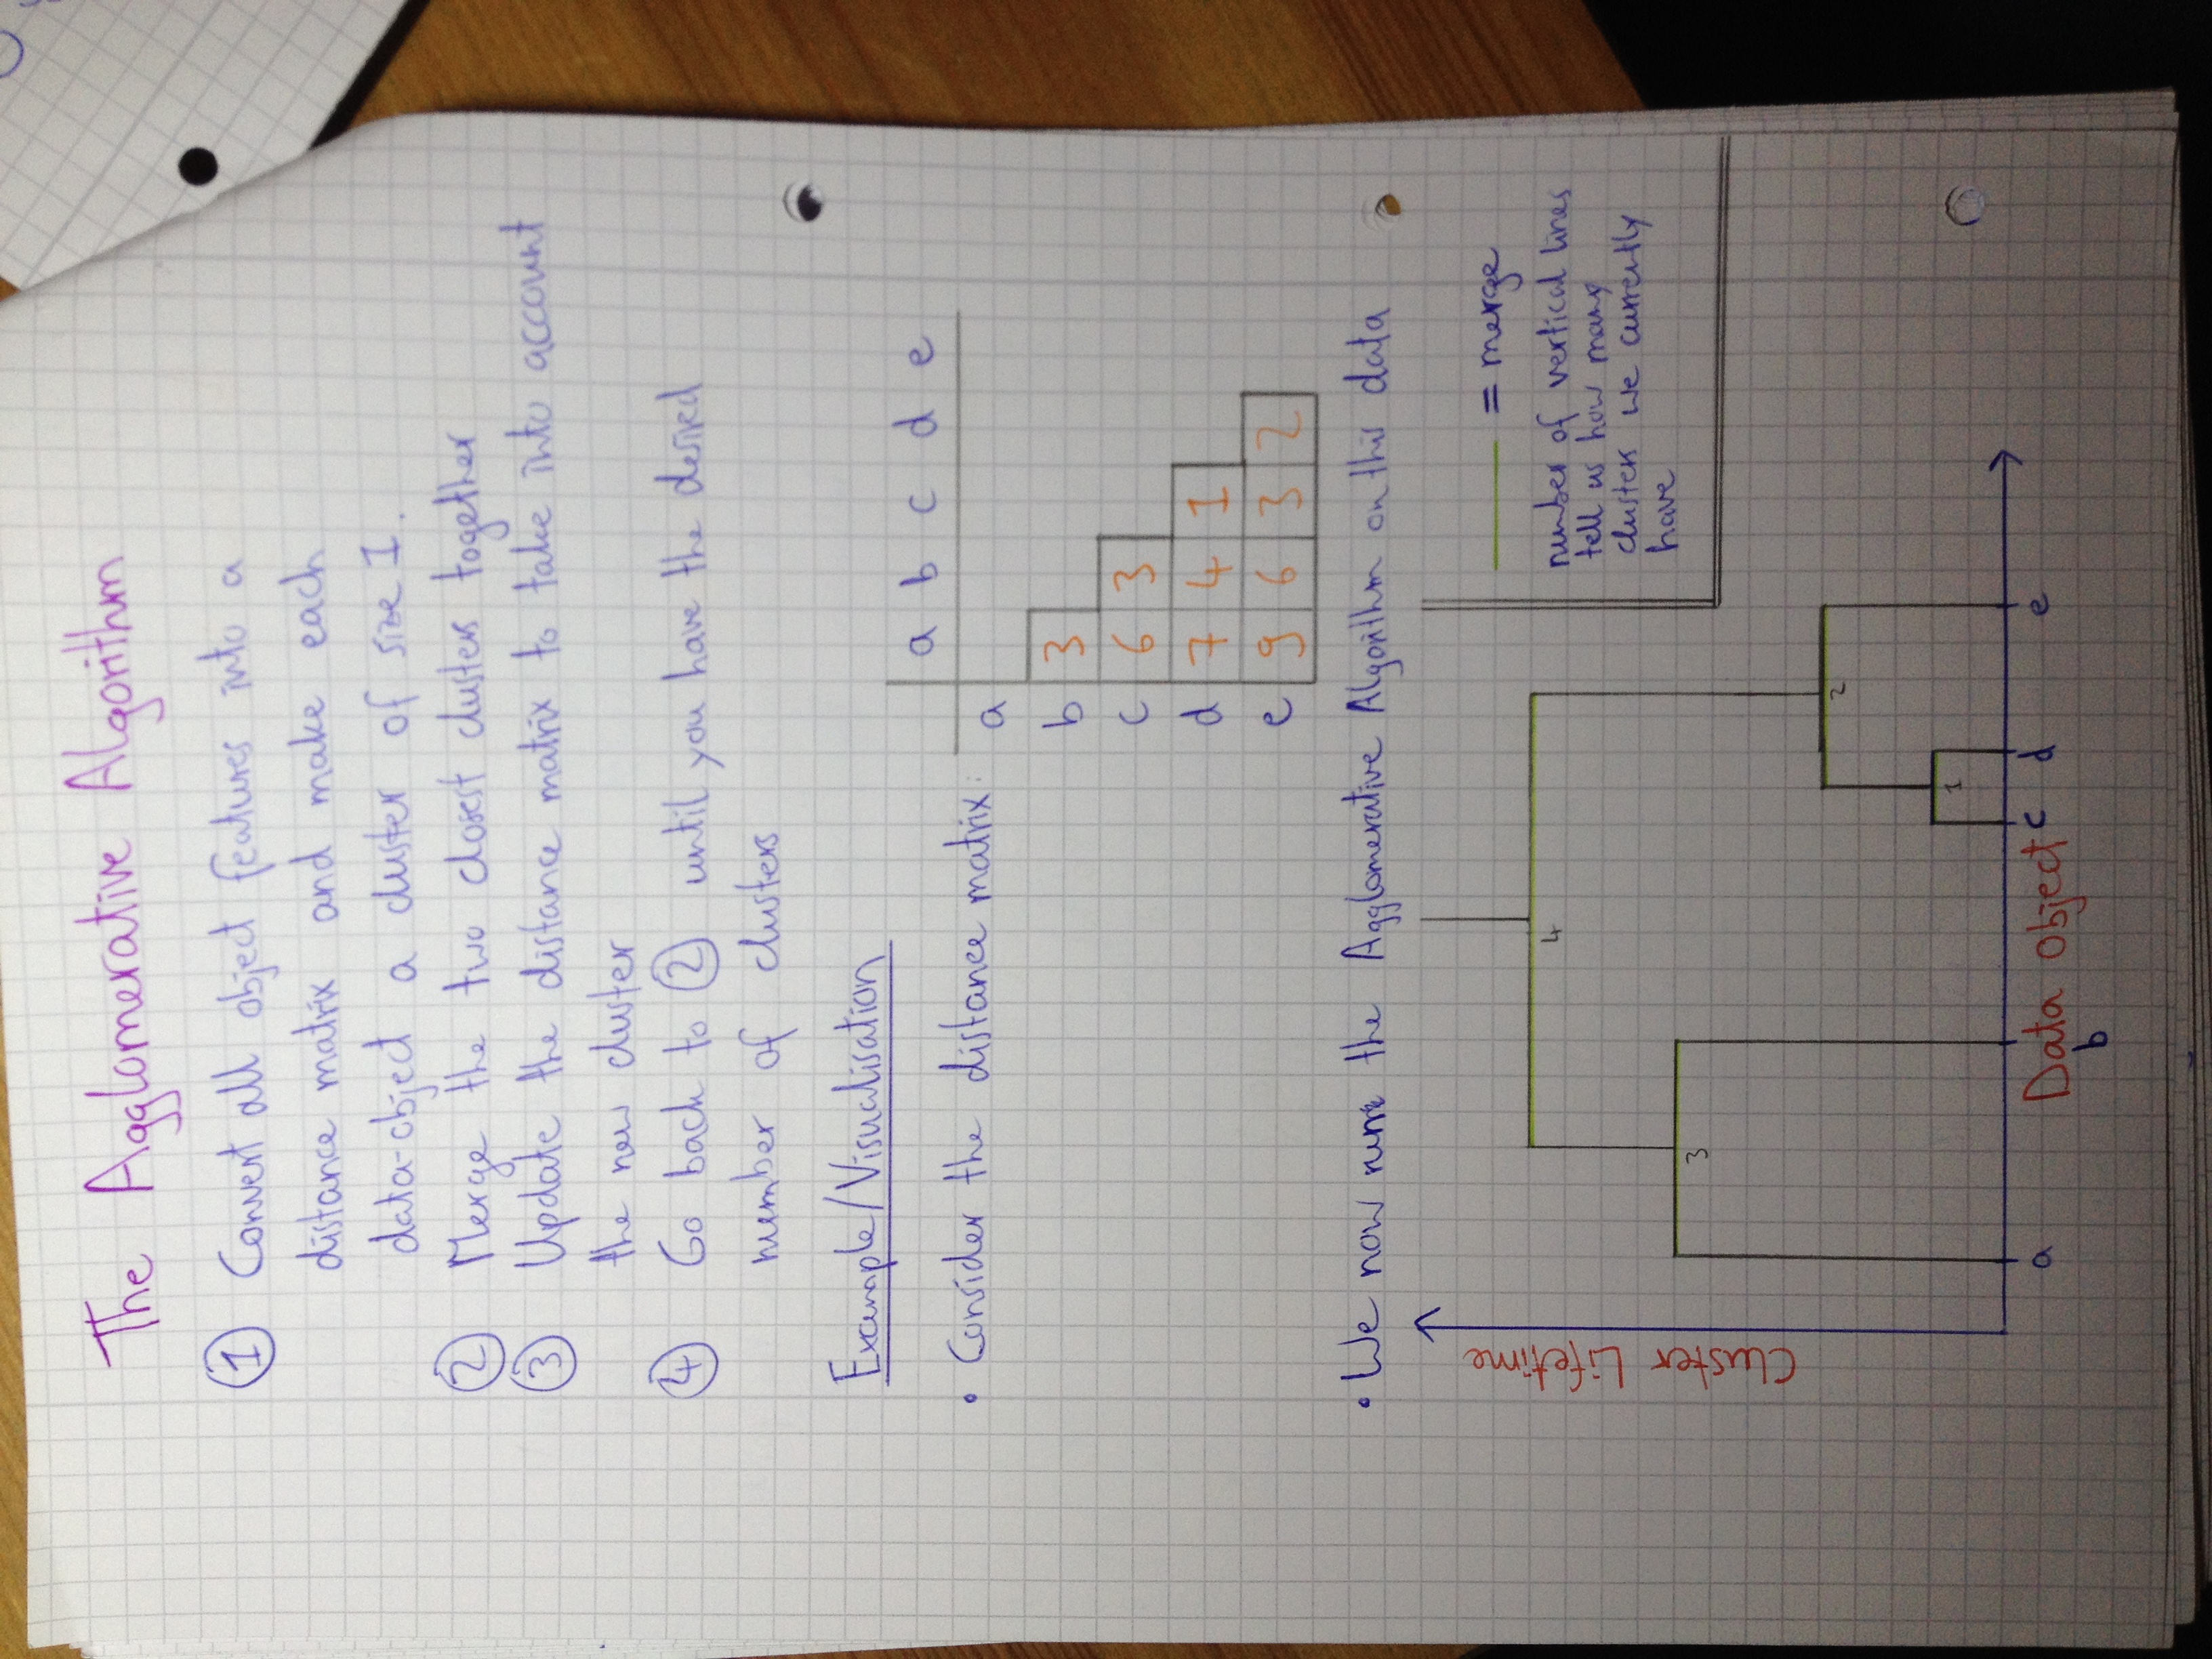 The Agglomerative Algorithm
① Convert all object features into a
distance matrix and make each
data-object a cluster of size 1.
② Merge the two closest clusters together
③ Update the distance matrix to take into account
the new cluster
④ Go back to ② until you have the desired
number of clusters
Example/Visualisation
• Consider the distance matrix:
a b c d e
a
b 3
c 6 3
d 7 4 1
e 9 6 3 2
• We now run the Agglomerative Algorithm on this data
Cluster Lifetime
= merge
number of vertical lines
tell us how many
clusters we currently
have
4
3
2
1
a Data Object c d e
b